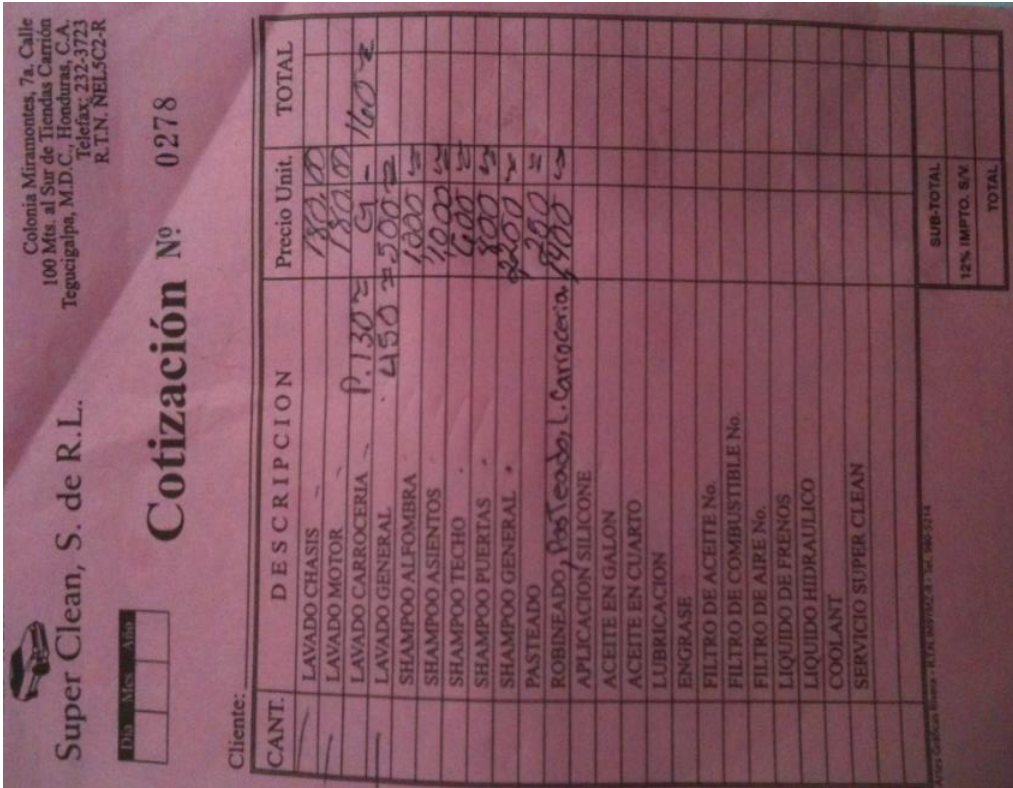 Super Clean, S. de R.L.
Colonia Miramontes, 7a. Calle
100 Mts. al Sur de Tiendas Carrión
Tegucigalpa, M.D.C., Honduras, C.A.
Telefax: 232-3723
R.T.N. ÑEL5C2-R
Dia Mes Año
Cotización Nº 0278
Cliente:
CANT. DESCRIPCION Precio Unit. TOTAL
LAVADO CHASIS 180.00
LAVADO MOTOR 180.00
LAVADO CARROCERIA P.130 G - 160
LAVADO GENERAL 450 500
SHAMPOO ALFOMBRA 1,200
SHAMPOO ASIENTOS 1,000
SHAMPOO TECHO 600
SHAMPOO PUERTAS 800
SHAMPOO GENERAL
PASTEADO
ROBINEADO, Pasteado, L. Carroceria 1,400
APLICACION SILICONE
ACEITE EN GALON
ACEITE EN CUARTO
LUBRICACION
ENGRASE
FILTRO DE ACEITE No.
FILTRO DE COMBUSTIBLE No.
FILTRO DE AIRE No.
LIQUIDO DE FRENOS
LIQUIDO HIDRAULICO
COOLANT
SERVICIO SUPER CLEAN
SUB-TOTAL
12% IMPTO. S/V
TOTAL